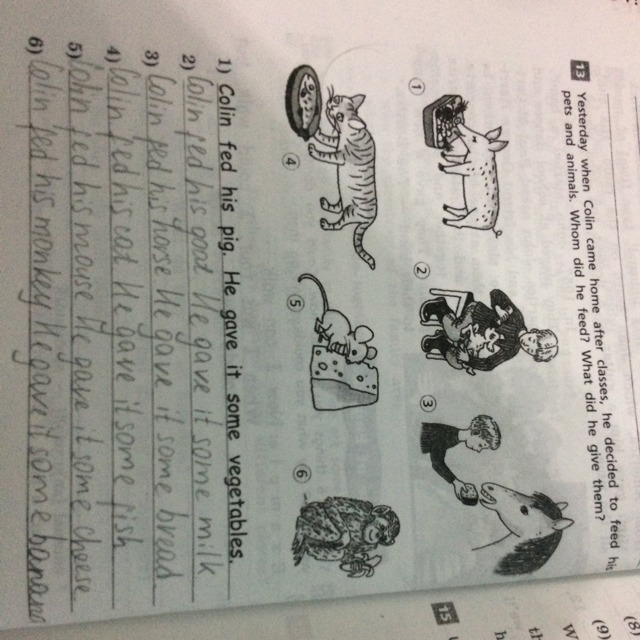 13 Yesterday when Colin came home after classes, he decided to feed his
pets and animals. Whom did he feed? What did he give them?
1
2
3
4
5
6
1) Colin fed his pig. He gave it some vegetables.
2) Colin fed his goat He gave it some milk
3) Colin fed his horse He gave it some bread
4) Colin fed his cat He gave it some fish
5) Colin fed his mouse He gave it some cheese
6) Colin fed his monkey He gave it some banana
15
(8)
(9)